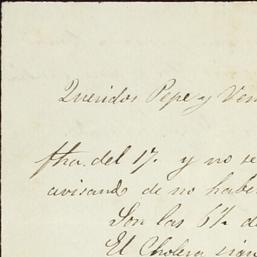 Queridos Pepe y Ven
fha. del 17. y no se
avisando de no habe
Son las 6½ d
El Cholera sigu